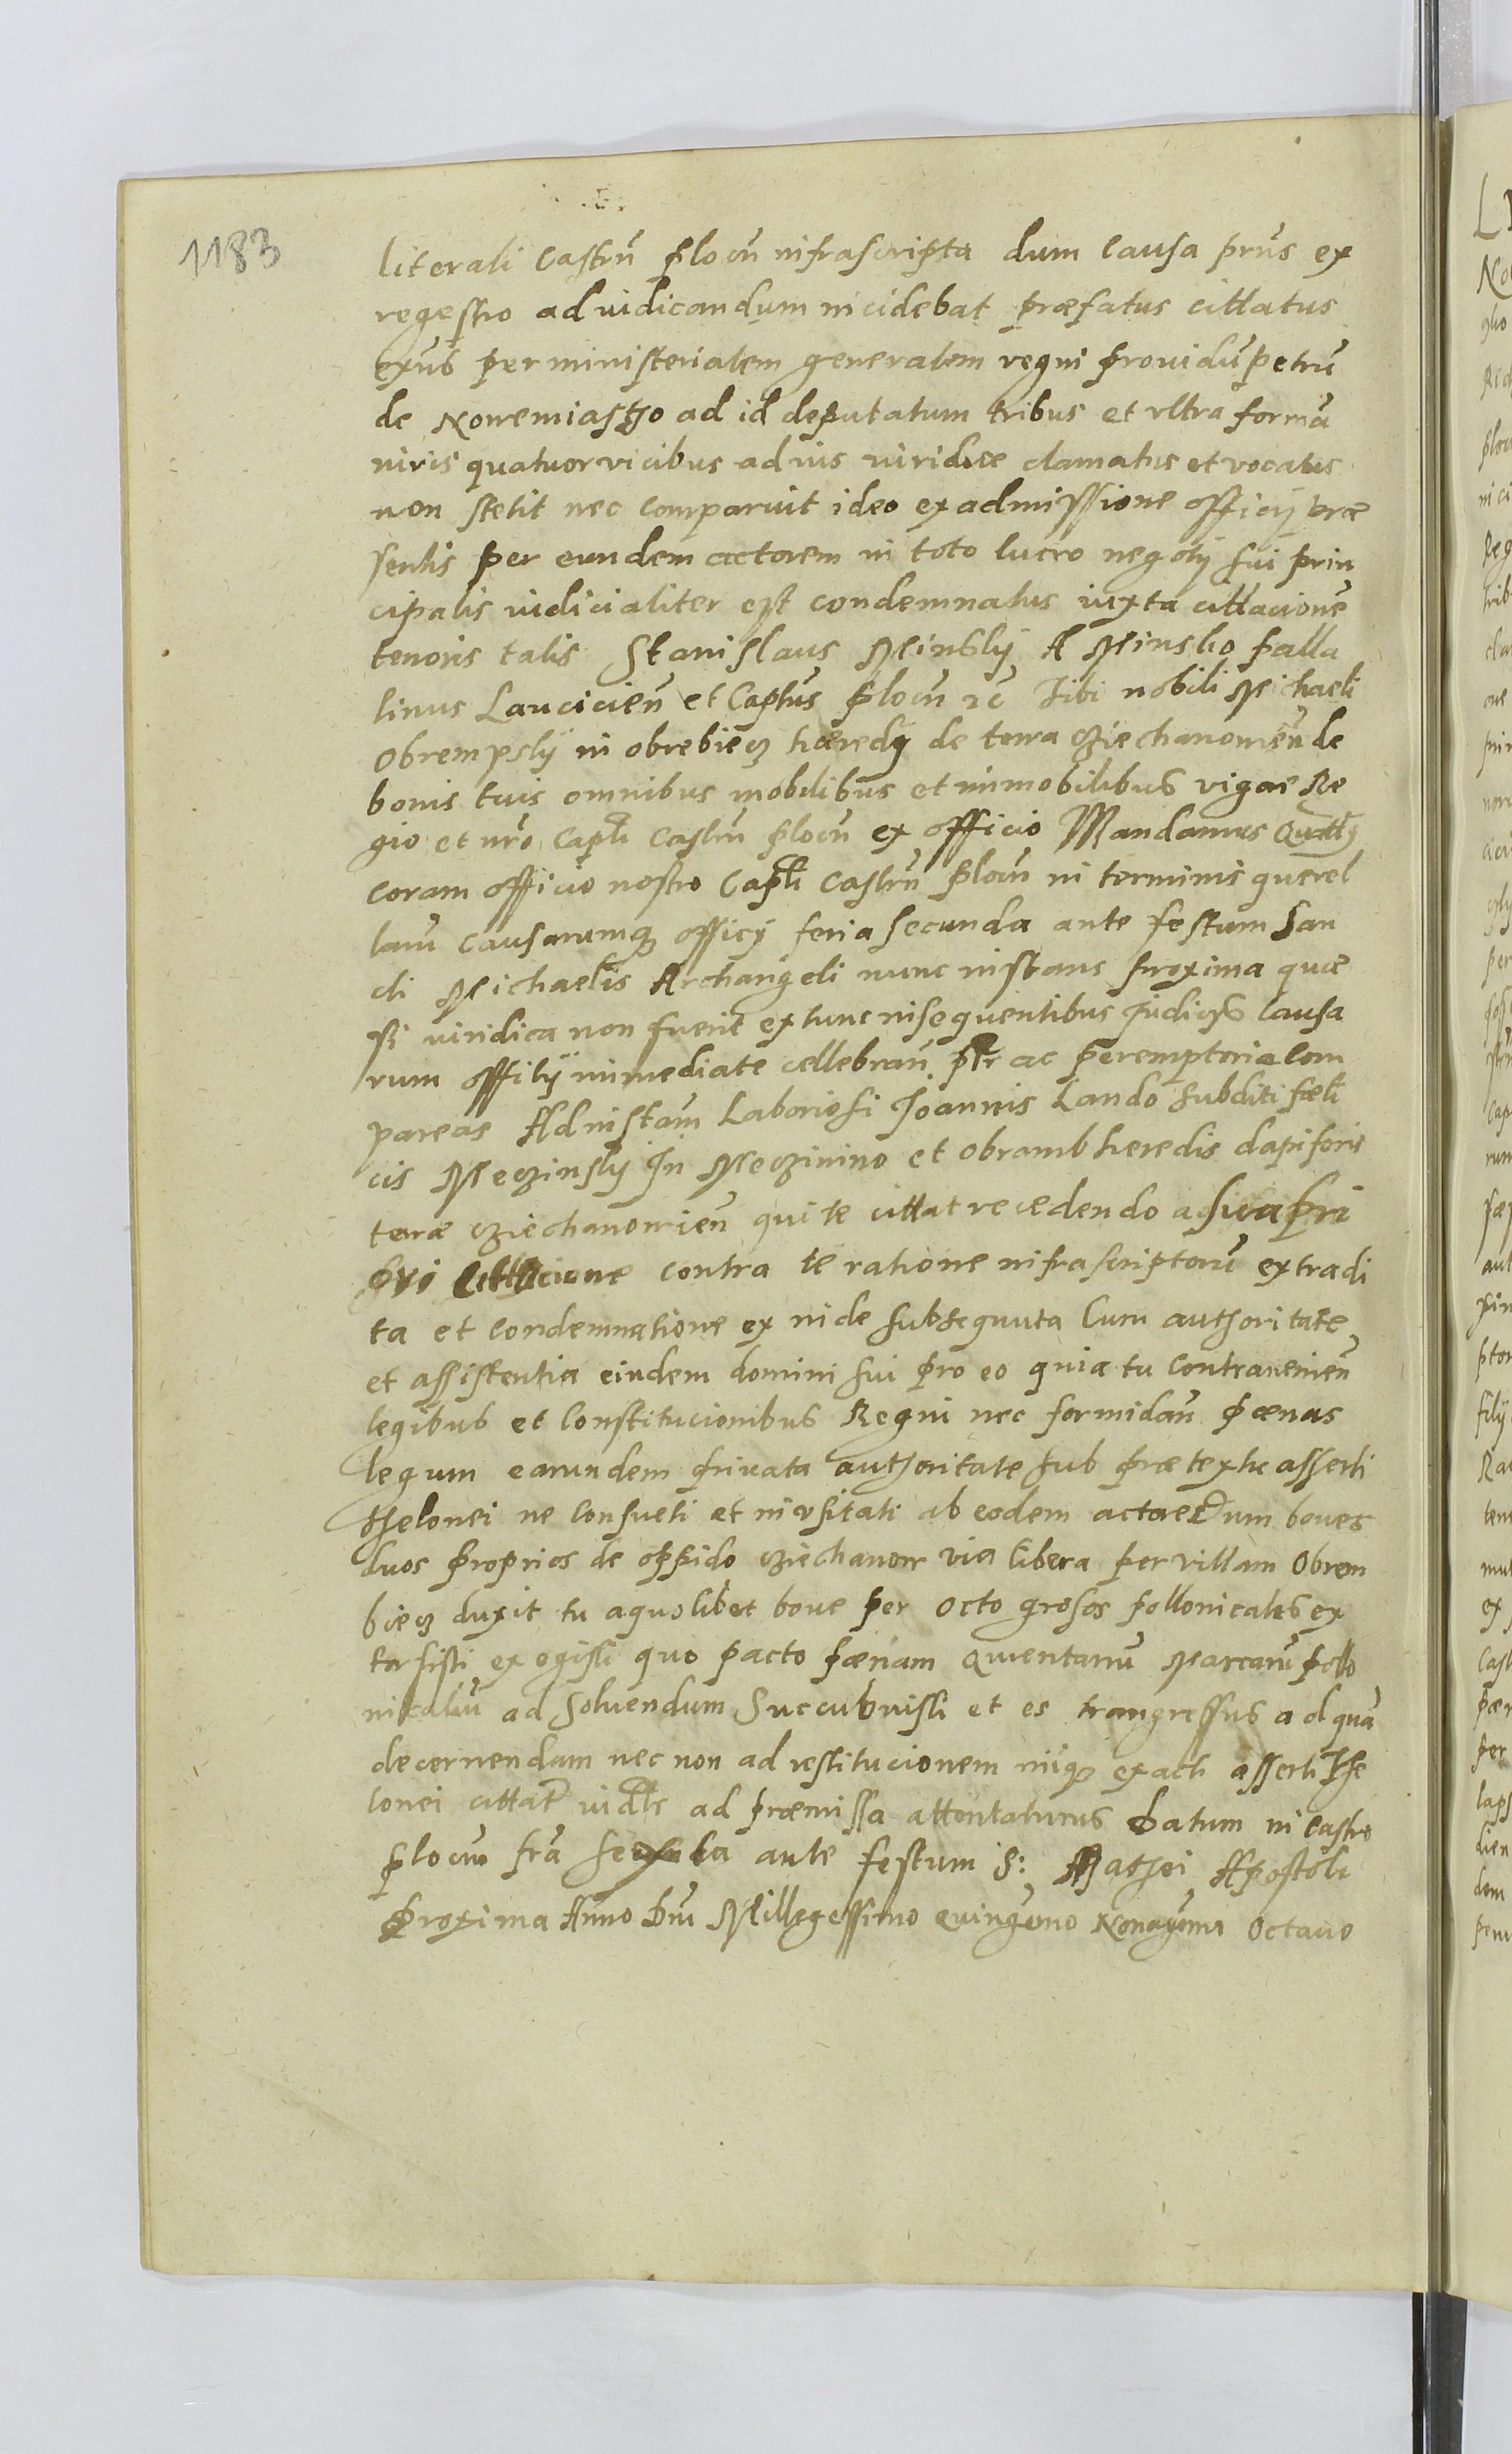 1183
literali Castrñ plocñ infrascripta dum Causa prus ex
regestro ad iudicandum incidebat præfatus cittatus
exus per ministerialem generalem regni prouidũ petrũ
de Nouemiastho ad id deputatum tribus et vltra formã
iuris quatuor vicibus ad ius iuridice clamatus et vocatus
non stetit nec Comparuit ideo ex admissione officij præ
sentis per eundem actorem in toto lucro negotij sui prin
cipalis iudicialiter est condemnatus iuxta cittacionẽ
tenoris talis Stanislaus Minsky A Minsko palla
linus Lancicieñ et Captus plocñ rc Tibi nobili Michaeli
Obrempsky in obrebiecz hæredy de terra Cziechanouieñ de
bonis tuis omnibus mobilibus et immobilibus vigore Re
gio et nro Captli Castrñ plocñ ex officio Mandamus Quatts
coram officio nostro Captli Castrñ plocñ in terminis querel
larũ Causarumq officij feria secunda ante festum San
cti Michaelis Archangeli nunc instans proxima quæ
si iuridica non fuerit extunc in sequentibus Judicijs Causa
rum offitij immediate cellebrañ ptr ac peremptorie Com
pareas Ad instam Laboriosi Joannis Lando subditi fæli
cis Meczinsky In Meczinino et Obramb heredis dapiferis
terræ Cziechanouieñ qui te cittat recedendo a sua pri
ori Cittacione contra te ratione infrascriptorũ extradi
ta et Condemnatione ex inde subsequuta Cum authoritate
et assistentia eiusdem domini sui pro eo quia tu Contraueñieñ
legibus et Constitucionibus Regni nec formidañ pænas
legum earundem priuata authoritate sub prætextu asserti
thelonei ne Consueti et inusitati ab eodem actore Dum boues
duos proprios de oppido Cziechanow via libera per villam Obrem
biecz duxit tu a quolibet boue per octo grosos pollonicales ex
torsisti exegisti quo pacto pænam quentarũ Marcarũ pollo
nicaliũ ad soluendum Succubuisti et es trangressus ad quã
decernendam nec non ad restitucionem iniqe exacti asserti The
lonei cittatr iudlr ad præmissa attentaturus Datum in Castro
plocñ fra sexta ante festum S: Mathei Apostoli
proxima Anno Dni Millegessimo quingeno Nonagemo Octauo